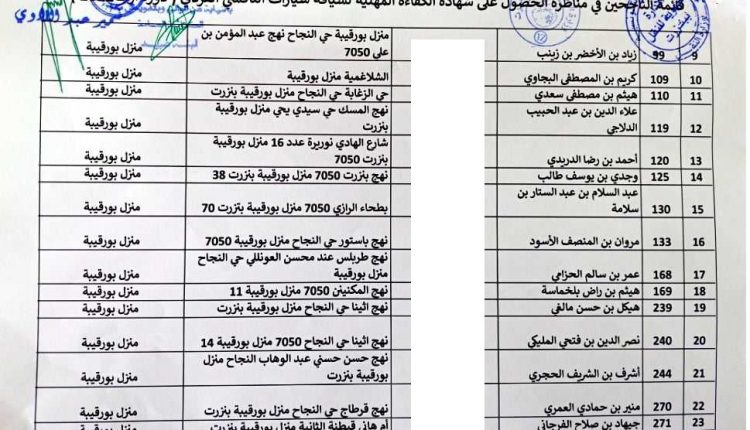 قائمة الناجحين في مناظرة الحصول على شهادة الكفاءة المهنية لسياقة سيارات التاكسي الفردي
9 99 زياد بن الأخضر بن زينب منزل بورقيبة حي النجاح نهج عبد المؤمن بن على 7050 منزل بورقيبة
10 109 كريم بن المصطفى البجاوي الشلاغمية منزل بورقيبة منزل بورقيبة
11 110 هيثم بن مصطفى سعدي حي الزغابة حي النجاح منزل بورقيبة بنزرت منزل بورقيبة
12 119 علاء الدين بن عبد الحبيب الدلاجي نهج المسك حي سيدي يحي منزل بورقيبة بنزرت منزل بورقيبة
13 120 أحمد بن رضا الدريدي شارع الهادي نويرة عدد 16 منزل بورقيبة بنزرت 7050 منزل بورقيبة
14 125 وجدي بن يوسف طالب نهج بنزرت 7050 منزل بورقيبة بنزرت 38 منزل بورقيبة
15 130 عبد السلام بن عبد الستار بن سلامة بطحاء الرازي 7050 منزل بورقيبة بنزرت 70 منزل بورقيبة
16 133 مروان بن المنصف الأسود نهج باستور حي النجاح منزل بورقيبة 7050 منزل بورقيبة
17 168 عمر بن سالم الحزامي نهج طربلس عند محسن العونللي حي النجاح منزل بورقيبة منزل بورقيبة
18 169 هيثم بن راض بلخماسة نهج المكنين 7050 منزل بورقيبة 11 منزل بورقيبة
19 239 هيكل بن حسن مالفي نهج اثينا حي النجاح منزل بورقيبة بنزرت منزل بورقيبة
20 240 نصر الدين بن فتحي المليكي نهج اثينا حي النجاح 7050 منزل بورقيبة 14 منزل بورقيبة
21 244 أشرف بن الشريف الحجري نهج حسن حسني عبد الوهاب النجاح منزل بورقيبة بنزرت منزل بورقيبة
22 270 منير بن حمادي العمري نهج قرطاج حي النجاح منزل بورقيبة بنزرت منزل بورقيبة
23 271 جيهاد بن صلاح الفرجاني أم هاني قيطنة الثانية منزل بورقيبة بنزرت منزل بورقيبة